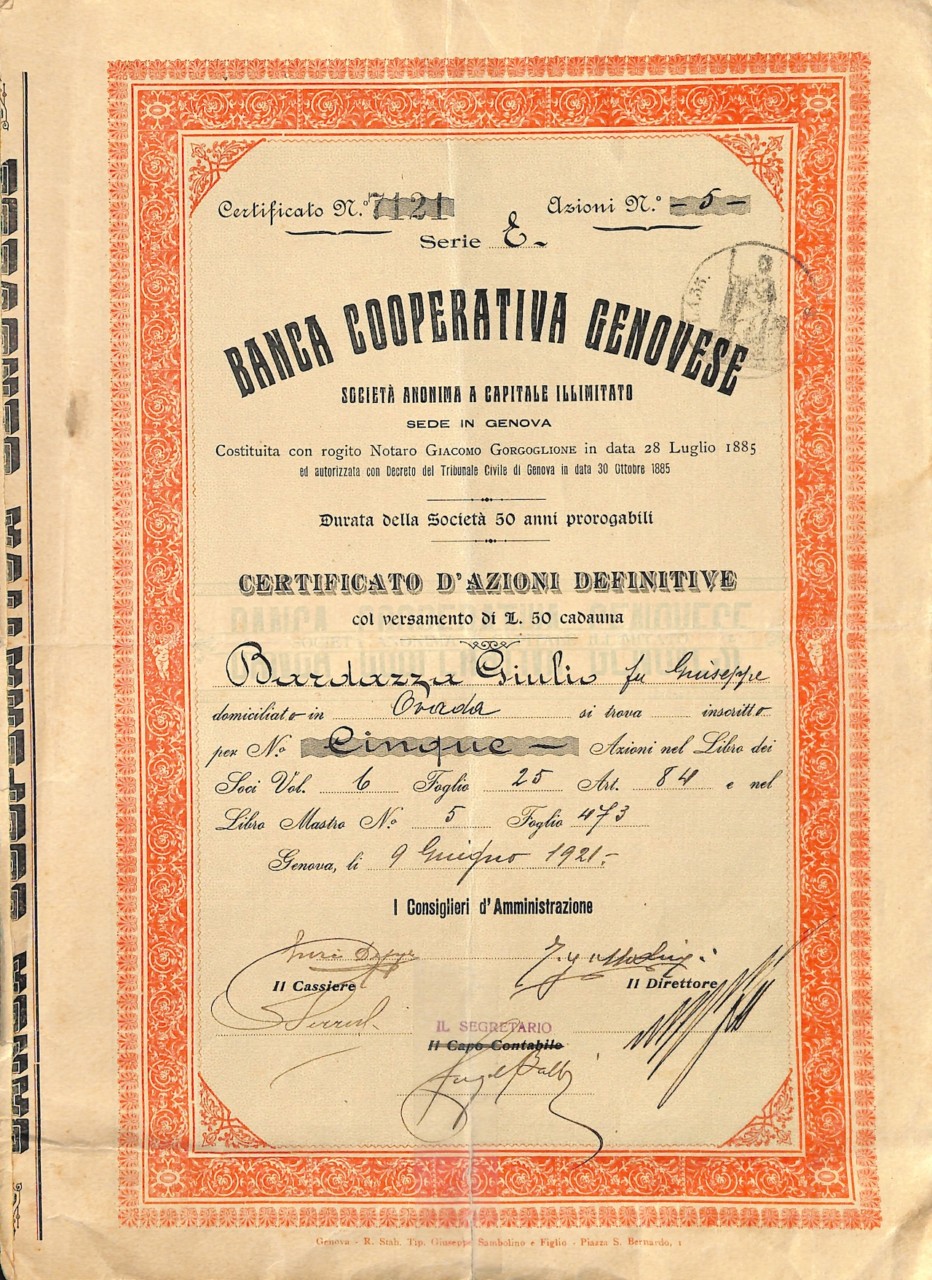 Certificato N.º 7121 Azioni N.º - 5 -
Serie E-
BANCA COOPERATIVA GENOVESE
SOCIETÀ ANONIMA A CAPITALE ILLIMITATO
SEDE IN GENOVA
Costituita con rogito Notaro GIACOMO GORGOGLIONE in data 28 Luglio 1885
ed autorizzata con Decreto del Tribunale Civile di Genova in data 30 Ottobre 1885
Durata della Società 50 anni prorogabili
CERTIFICATO D'AZIONI DEFINITIVE
col versamento di L. 50 cadauna
Bardazza Giulio fu Giuseppe
domiciliato in Ovada si trova inscritto
per N.º Cinque - Azioni nel Libro dei
Soci Vol. 6 Foglio 25 Art. 84 e nel
Libro Mastro N.º 5 Foglio 473
Genova, li 9 Giugno 1921-
I Consiglieri d'Amministrazione
Il Cassiere Il Direttore
IL SEGRETARIO
Il Capo Contabile
Genova - R. Stab. Tip. Giuseppe Sambolino e Figlio - Piazza S. Bernardo, 1